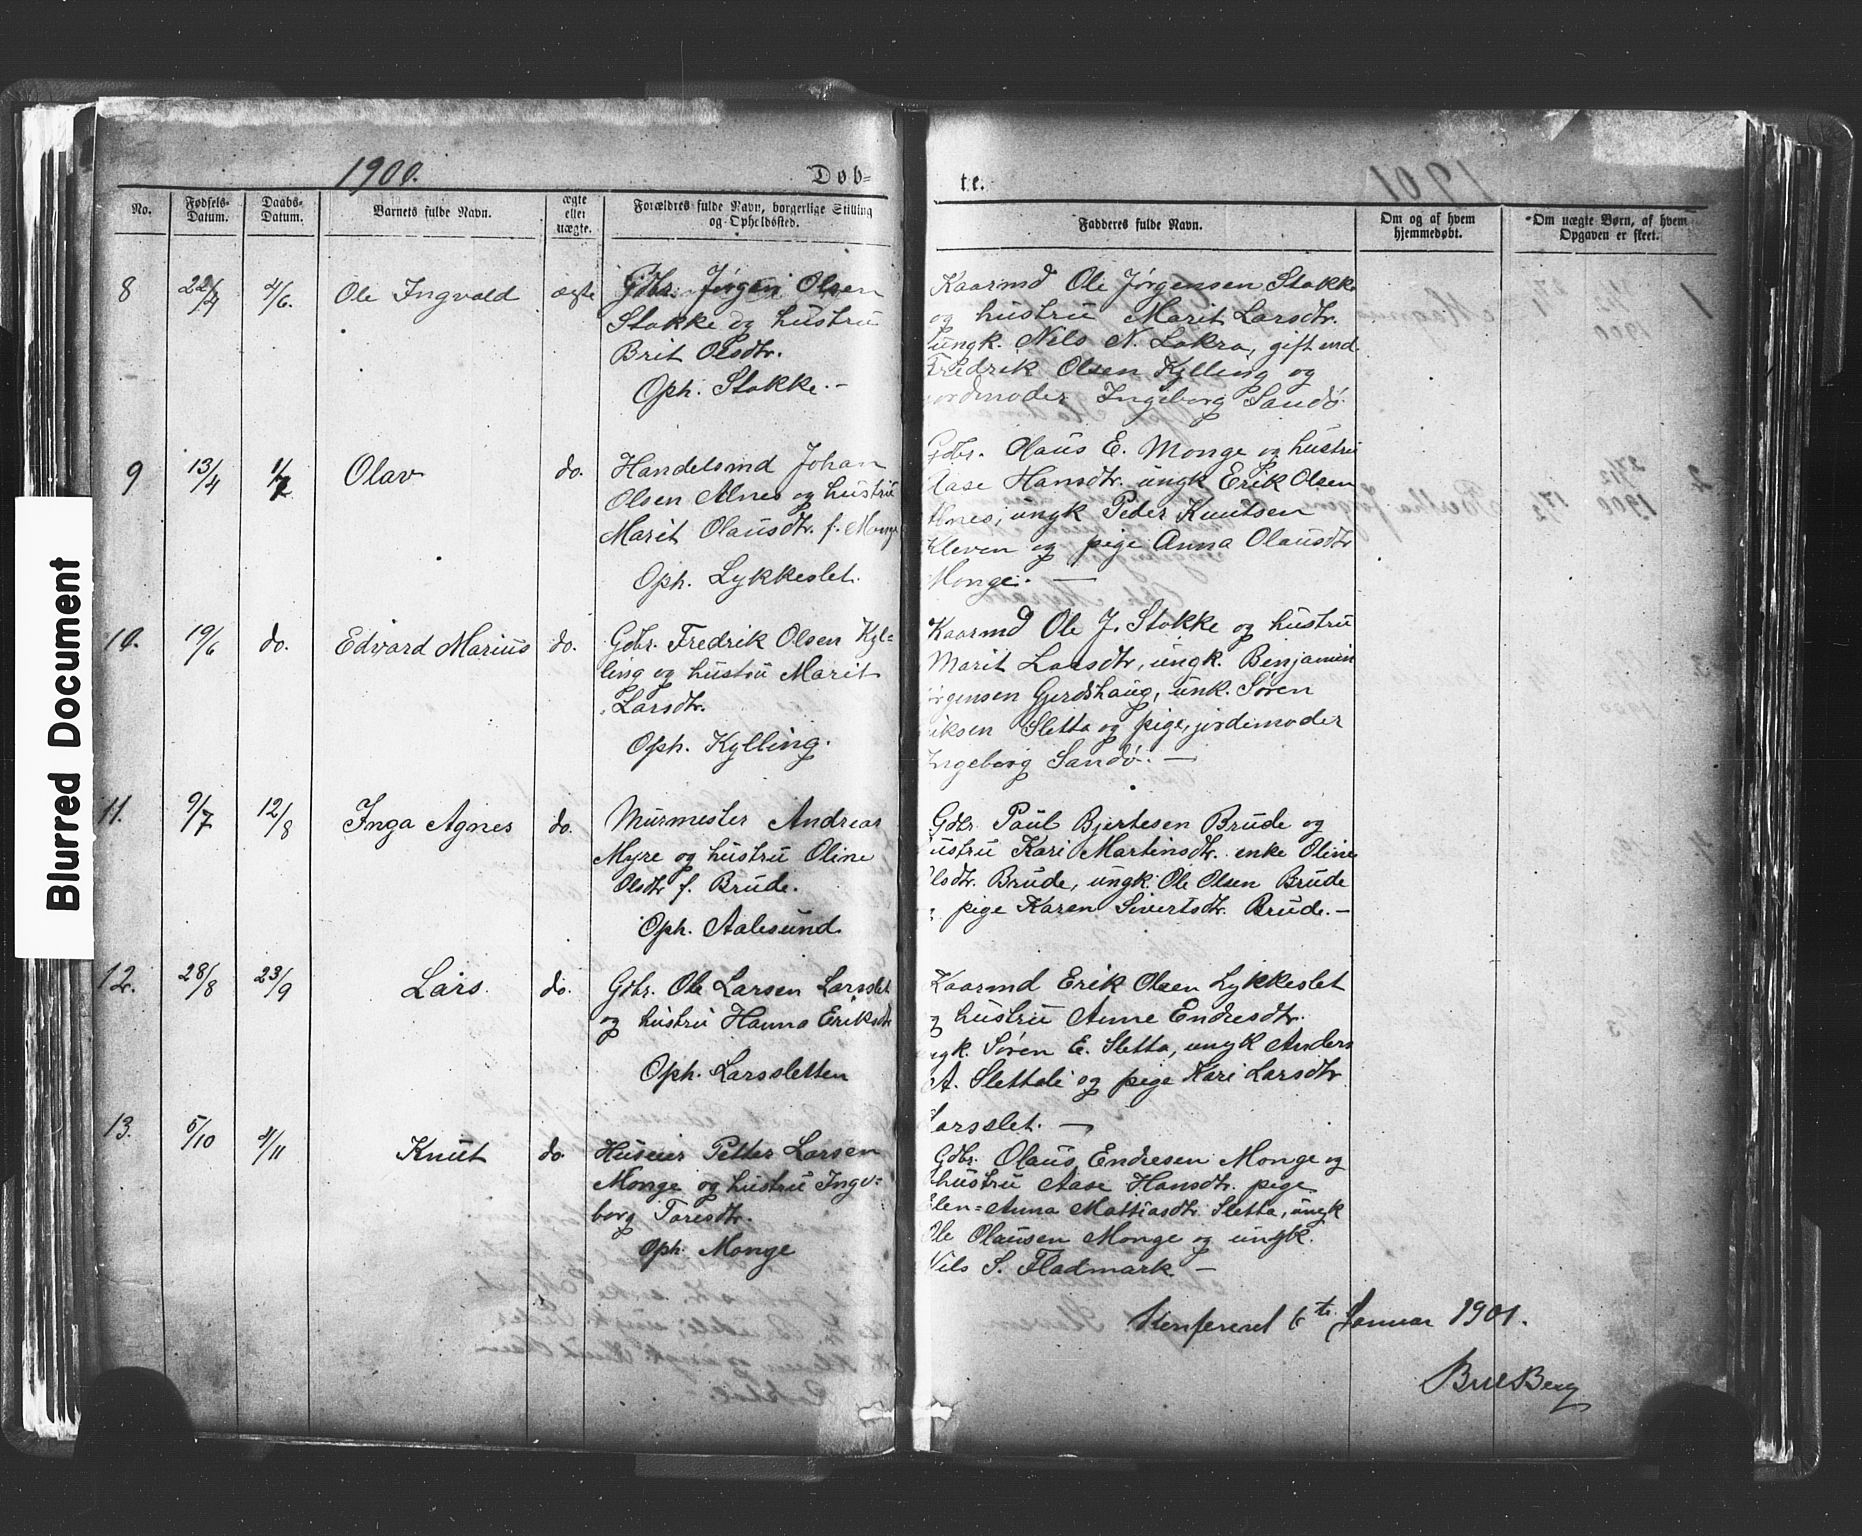 Blurred Document
1900.
Døb=
te.
No.
Fødsels-Datum.
Daabs-Datum.
Barnets fulde Navn.
ægte eller uægte.
Forældres fulde Navn, borgerlige Stilling og Opholdssted.
Fadderes fulde Navn.
Om og af hvem hjemmedøbt.
Om uægte Børn, af hvem Opgaven er skeet.
8 22/4 4/6. Ole Ingvald ægte
Gdbr. Jørgen Olsen
Stokke og hustru
Brit Olsdtr.
Oph. Stokke. -
Kaarmd Ole Jørgensen Stokke
og hustru Marit Larsdtr.
ungk. Nils N. Lokra, gift md
Fredrik Olsen Kylling og
jordmoder Ingeborg Sandö
9 13/4 1/7 Olav do.
Handelsmd Johan
Olsen Alnes og hustru
Marit Olausdtr. f. Monge
Oph. Lykkeslet.
Gdbr. Olaus E. Monge og hustru
Aase Hansdtr. ungk Erik Olsen
Alnes, ungk Peder Knutsen
Kleven og pige Anna Olausdtr
Monge. —
10. 19/6 do. Edvard Marius do.
Gdbr. Fredrik Olsen Kyl=
ling og hustru Marit
Larsdtr.
Oph. Kylling.
Kaarmd Ole J. Stokke og hustru
Marit Larsdtr, ungk. Benjamin
Jørgensen Gjerdshaug, unk. Søren
Eriksen Sletta og pige, jordemoder
Ingeborg Sandö. —
11. 9/7 12/8 Inga Agnes do.
Murmester Andreas
Myre og hustru Oline
Olsdtr f. Brude.
Oph. Aalesund.
Gdbr. Paul Bjertesen Brude og
hustru Kari Martinsdtr. enke Oline
Olsdtr. Brude, ungk. Ole Olsen Brude
og pige Karen Sivertsdtr. Brude. —
12. 28/8 23/9 Lars. do.
Gdbr. Ole Larsen Larsslet
og hustru Hanna Eriksdtr
Oph. Larssletten
Kaarmd Erik Olsen Lykkeslet
og hustru Anne Endresdtr.
ungk. Søren E. Sletta, ungk Anders
A. Slettali og pige Kari Larsdtr
Larsslet. —
13. 5/10 4/11 Knut do.
Huseier Petter Larsen
Monge og hustru Inge=
borg Toresdtr.
Oph. Monge
Gdbr. Olaus Endresen Monge og
hustru Aase Hansdtr. pige
Elen=Anna Mattiasdtr. Sletta, ungk
Ole Olausen Monge og ungk.
Nils S. Fladmark —
Konfereret 6te Januar 1901.